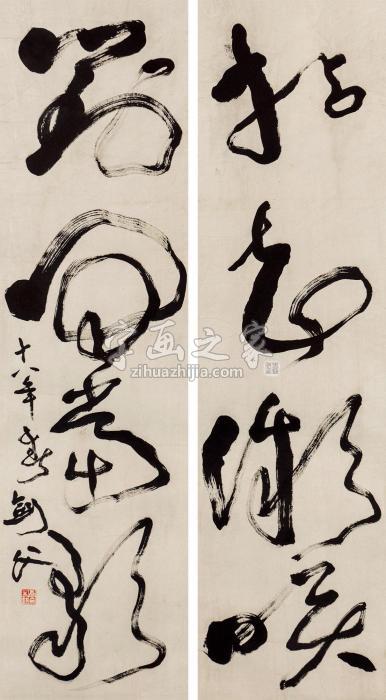 拈花微咲
對酒當歌
十八年春劍父
字画之家
zihuazhijia.com